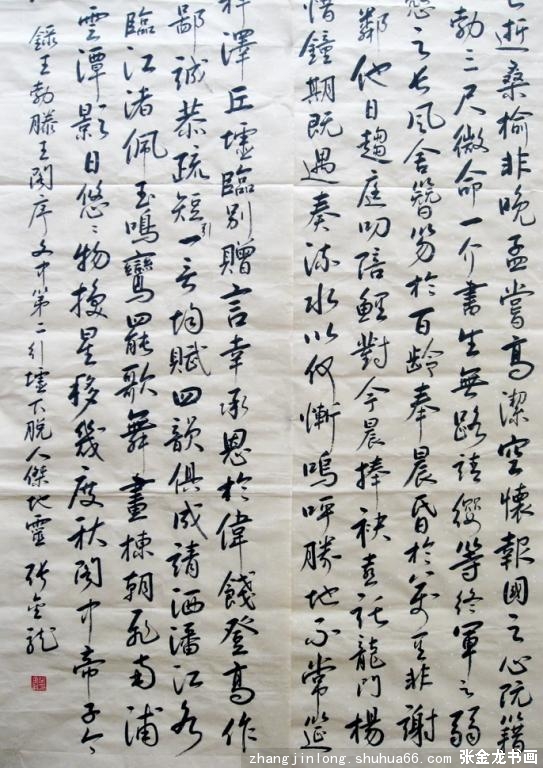 逝桑榆非晚孟嘗高潔空懷報國之心阮籍
勃三尺微命一介書生無路請纓等終軍之弱
愨之長風舍簪笏於百齡奉晨昏於萬里非謝
鄰他日趨庭叨陪鯉對今晨捧袂喜託龍門楊
惜鐘期既遇奏流水以何慚嗚呼勝地不常筵
梓澤丘墟臨別贈言幸承恩於偉餞登高作
鄙誠恭疏短引一言均賦四韻俱成請洒潘江各
臨江渚佩玉鳴鸞罷歌舞畫棟朝飛南浦
雲潭影日悠〻物換星移幾度秋閣中帝子今
錄王勃滕王閣序文中第二引墟下脫人傑地靈 張金龍
zhangjinlong.shuhua66.com 张金龙书画